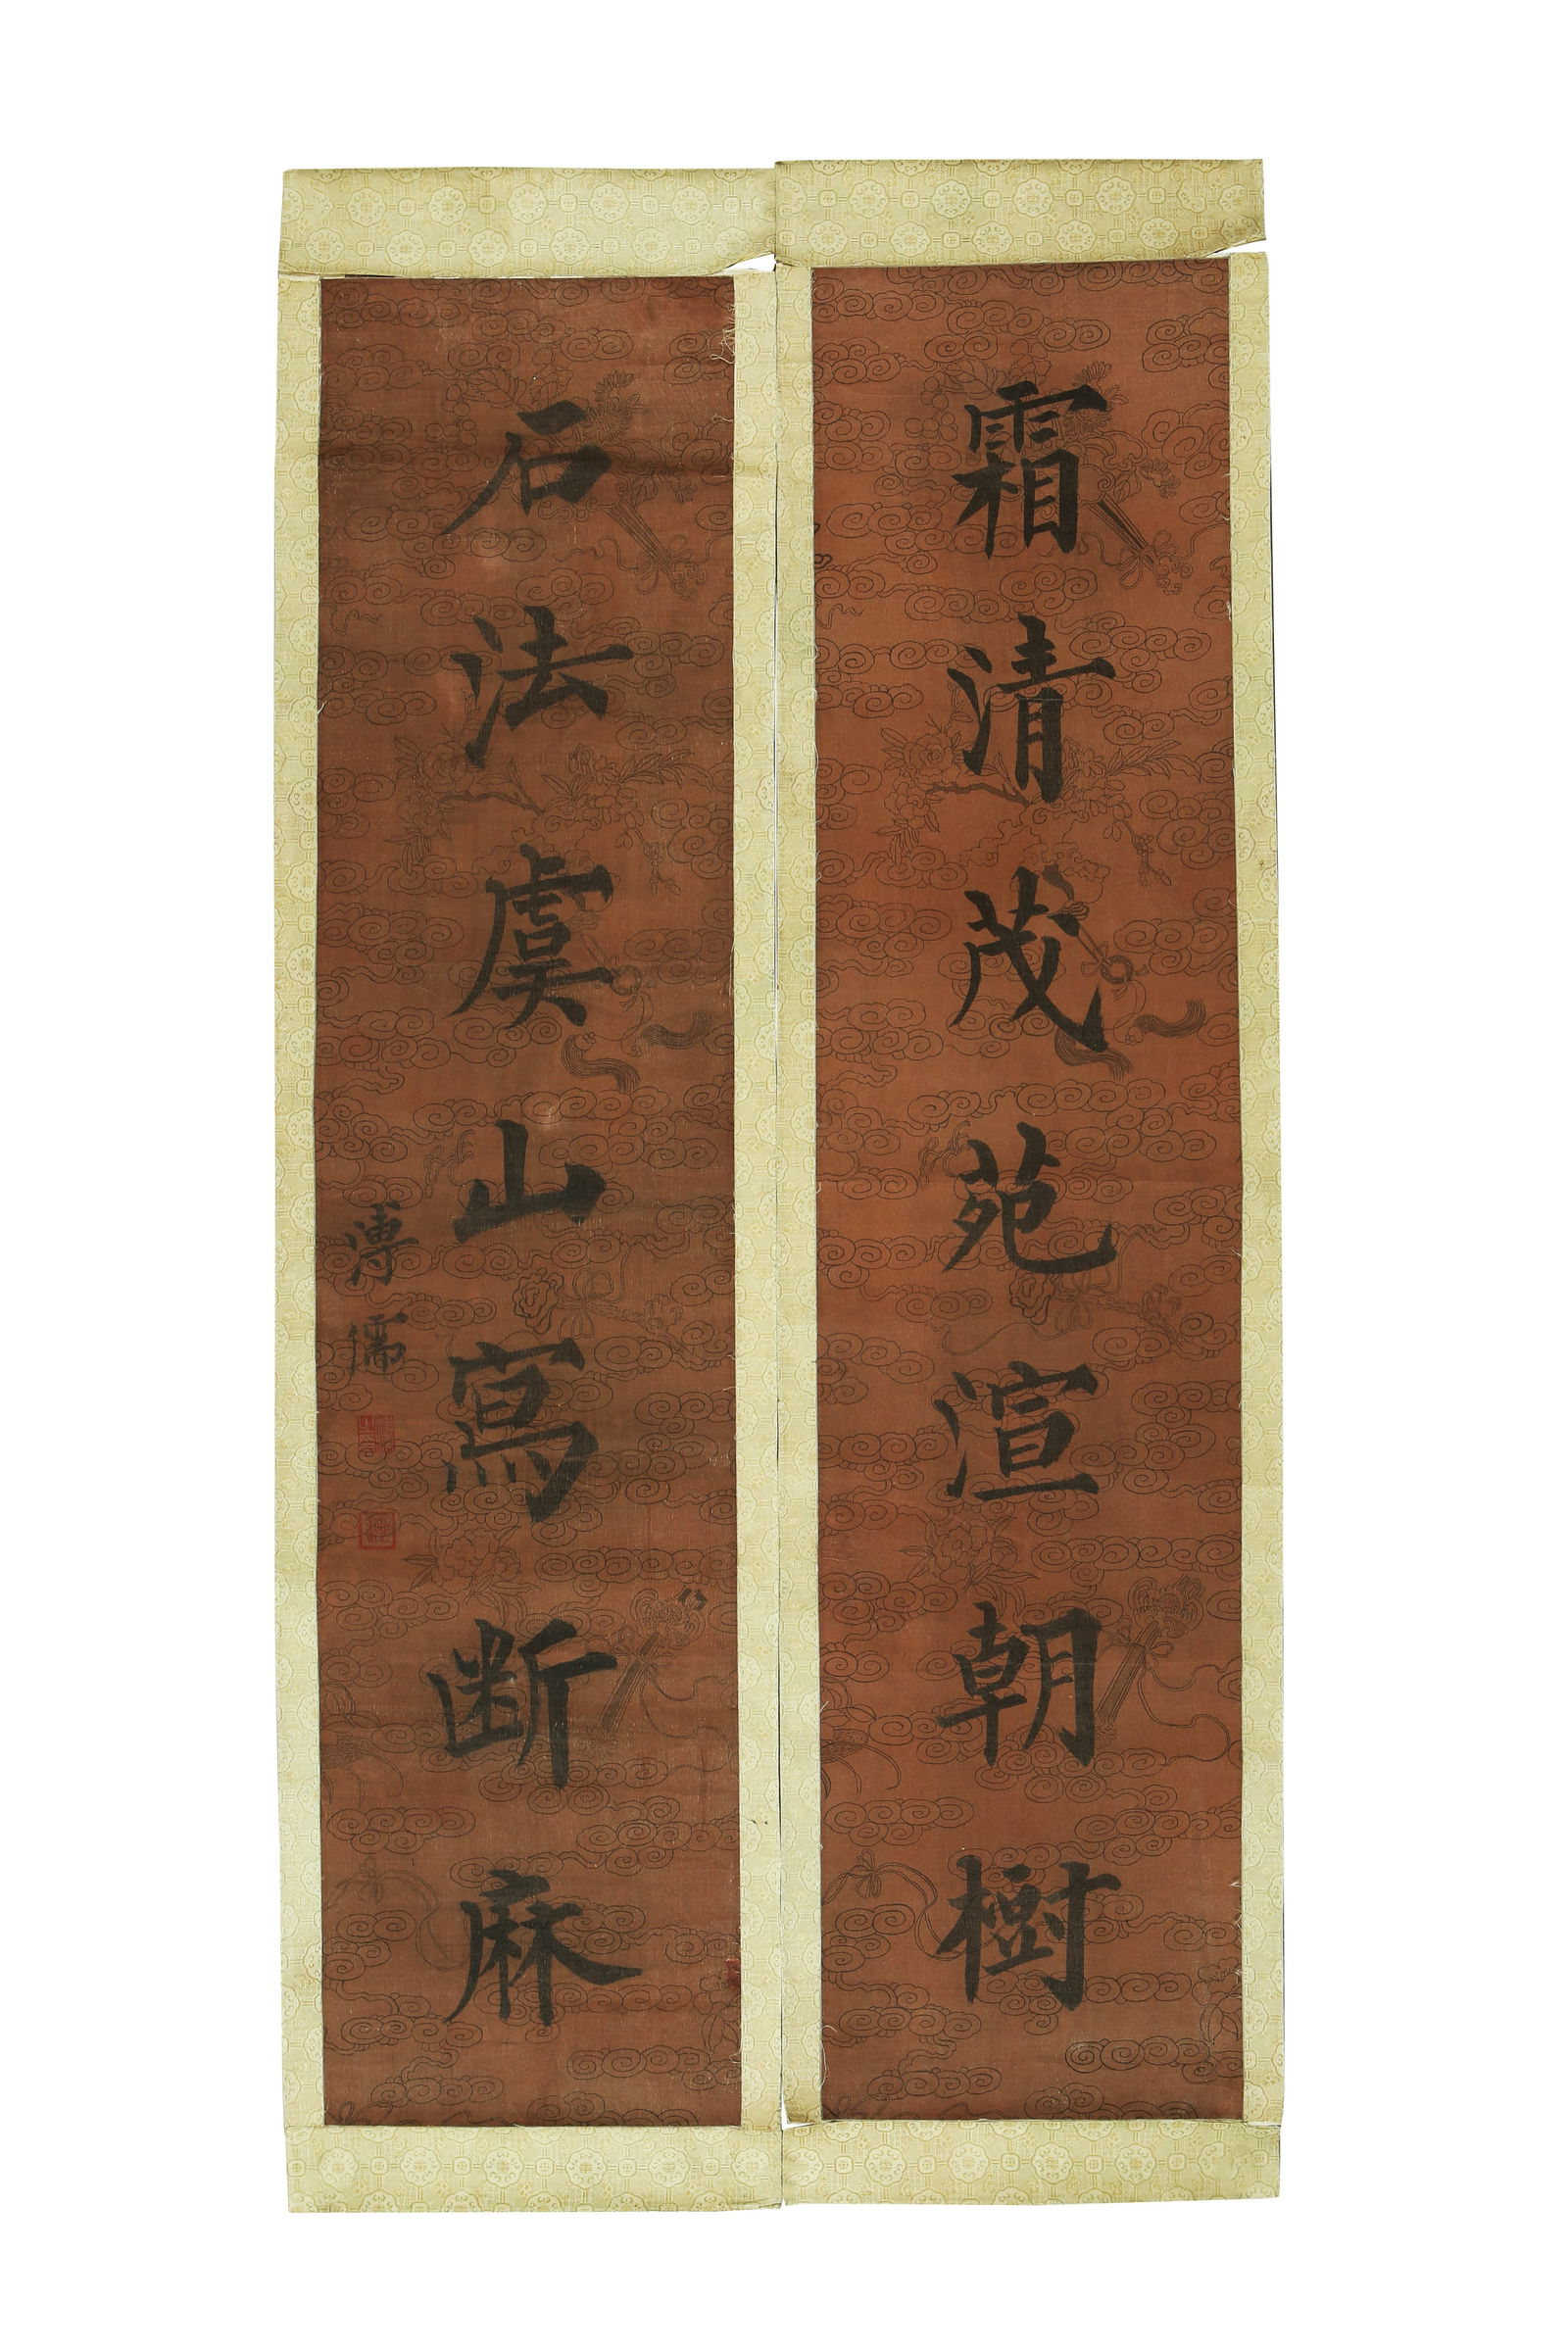 霜清茂苑渲朝樹
石法虞山寫断麻
溥儒